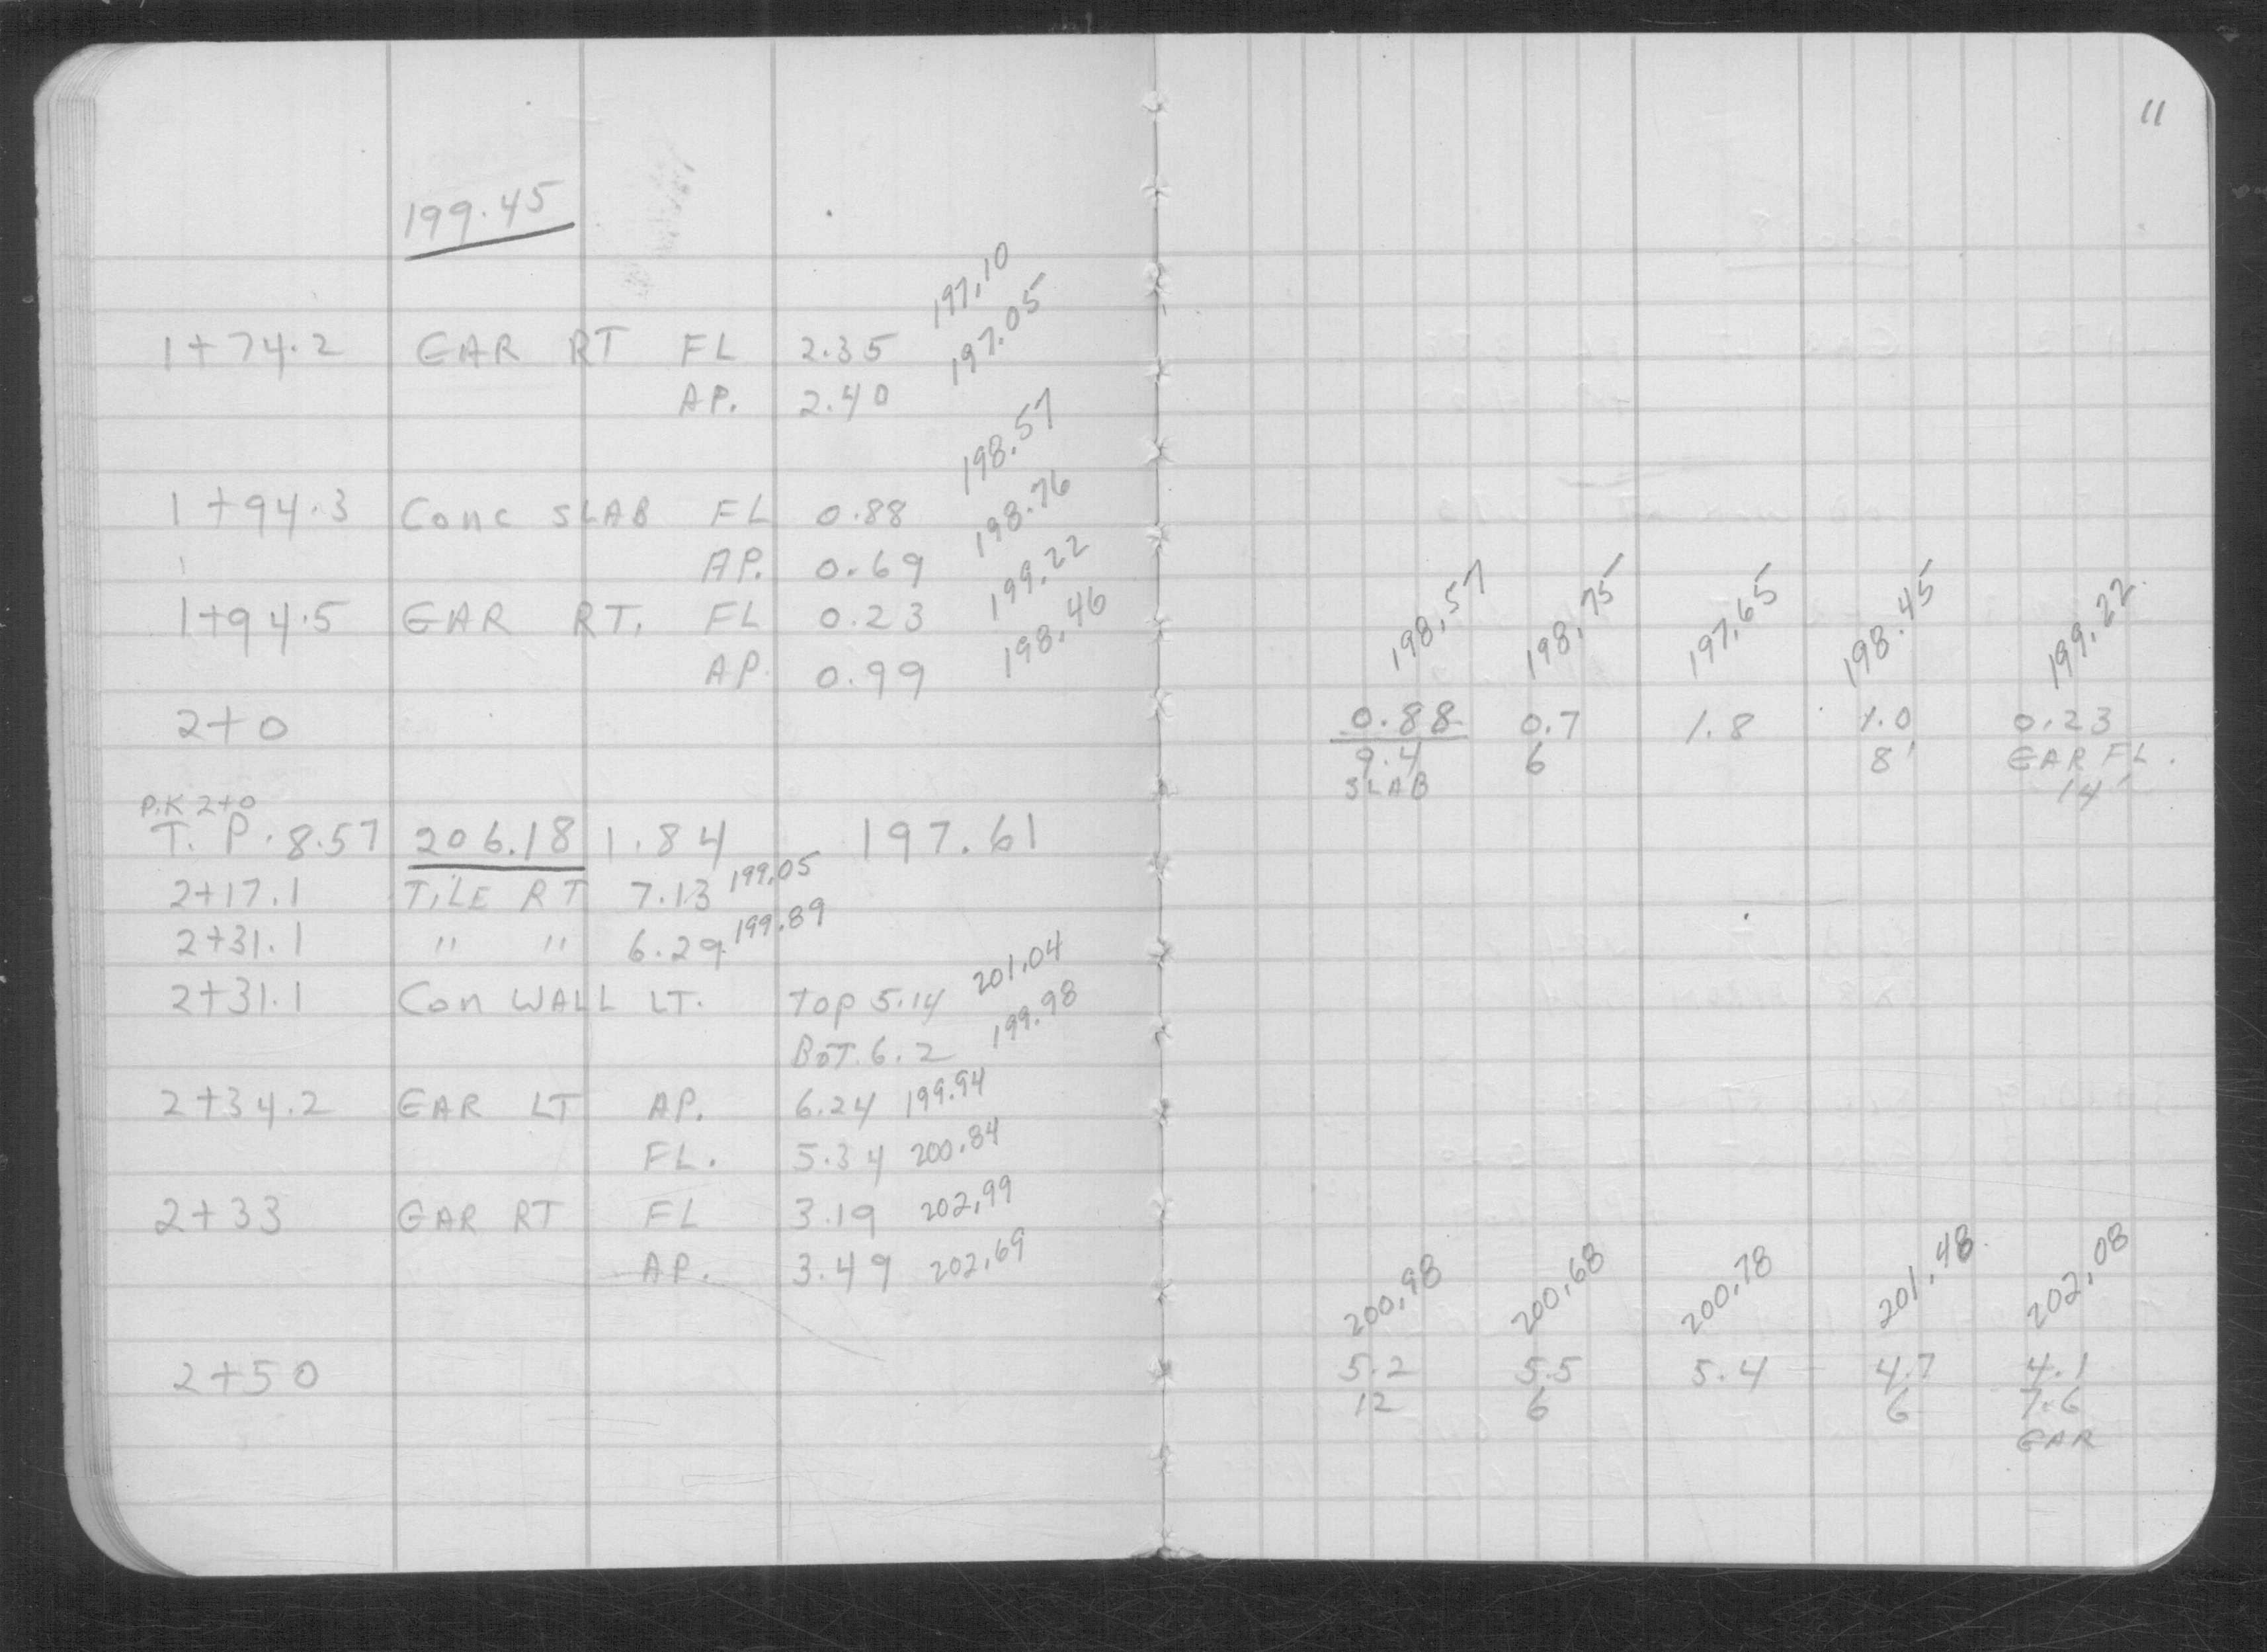 11
199.45
197.10
1+74.2 GAR RT FL 2.35 197.05
AP. 2.40
198.57
1+94.3 Conc SLAB FL 0.88 198.76
AP. 0.69 199.22
1+94.5 GAR RT. FL 0.23 198.46
AP. 0.99
198.57 198.75 197.65 198.45 199.22
2+0 0.88 0.7 1.8 1.0 0.23
9.4 6 8' GAR FL.
SLAB 14'
P.K 2+0
T. P. 8.57 206.18 1.84 197.61
2+17.1 TILE RT 7.13 199.05
2+31.1 " " 6.29 199.89
2+31.1 Con WALL LT. Top 5.14 201.04
BOT. 6.2 199.98
2+34.2 GAR LT AP. 6.24 199.94
FL. 5.34 200.84
2+33 GAR RT FL 3.19 202.99
AP. 3.49 202.69
200.98 200.68 200.78 201.48 202.08
2+50 5.2 5.5 5.4 4.7 4.1
12 6 6 7.6
GAR